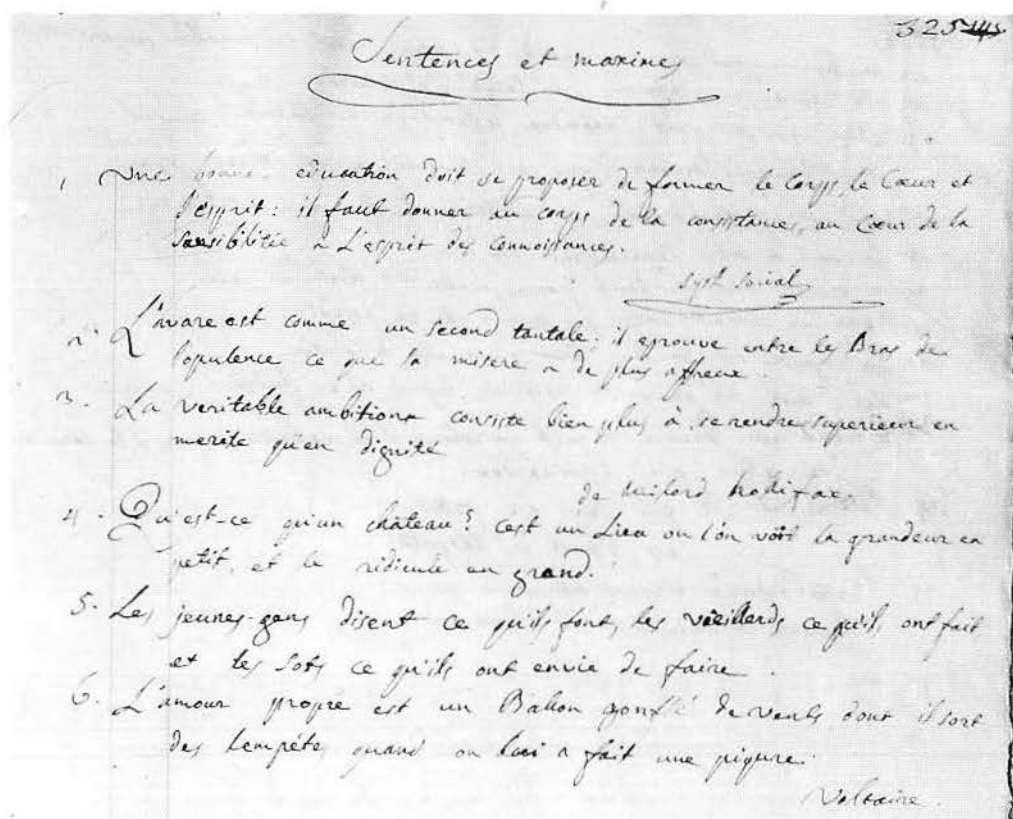 325
Sentences et maximes
1 Une bonne education doit se proposer de former le Corps, le Cœur et
l'esprit: il faut donner au corps de la consistance, au Cœur de la
sensibilitée a L'esprit des connoissances.
syst. social
2 L'avare est comme un second tantale; il eprouve entre les Bras de
l'opulence ce que la misere a de plus affreux.
3. La veritable ambition consiste bien plus à se rendre superieur en
merite qu'en dignité
de Milord
4. Qu'est-ce qu'un château? cest un Lieu ou l'on voit la grandeur en
petit, et le ridicule en grand.
5. Les jeunes-gens disent ce qu'ils font, les vieillards ce qu'ils ont fait
et les sots ce qu'ils ont envie de faire.
6. L'amour propre est un Ballon gonflé de vents dont il sort
des tempétes quand on lui a fait une piqure.
Voltaire.